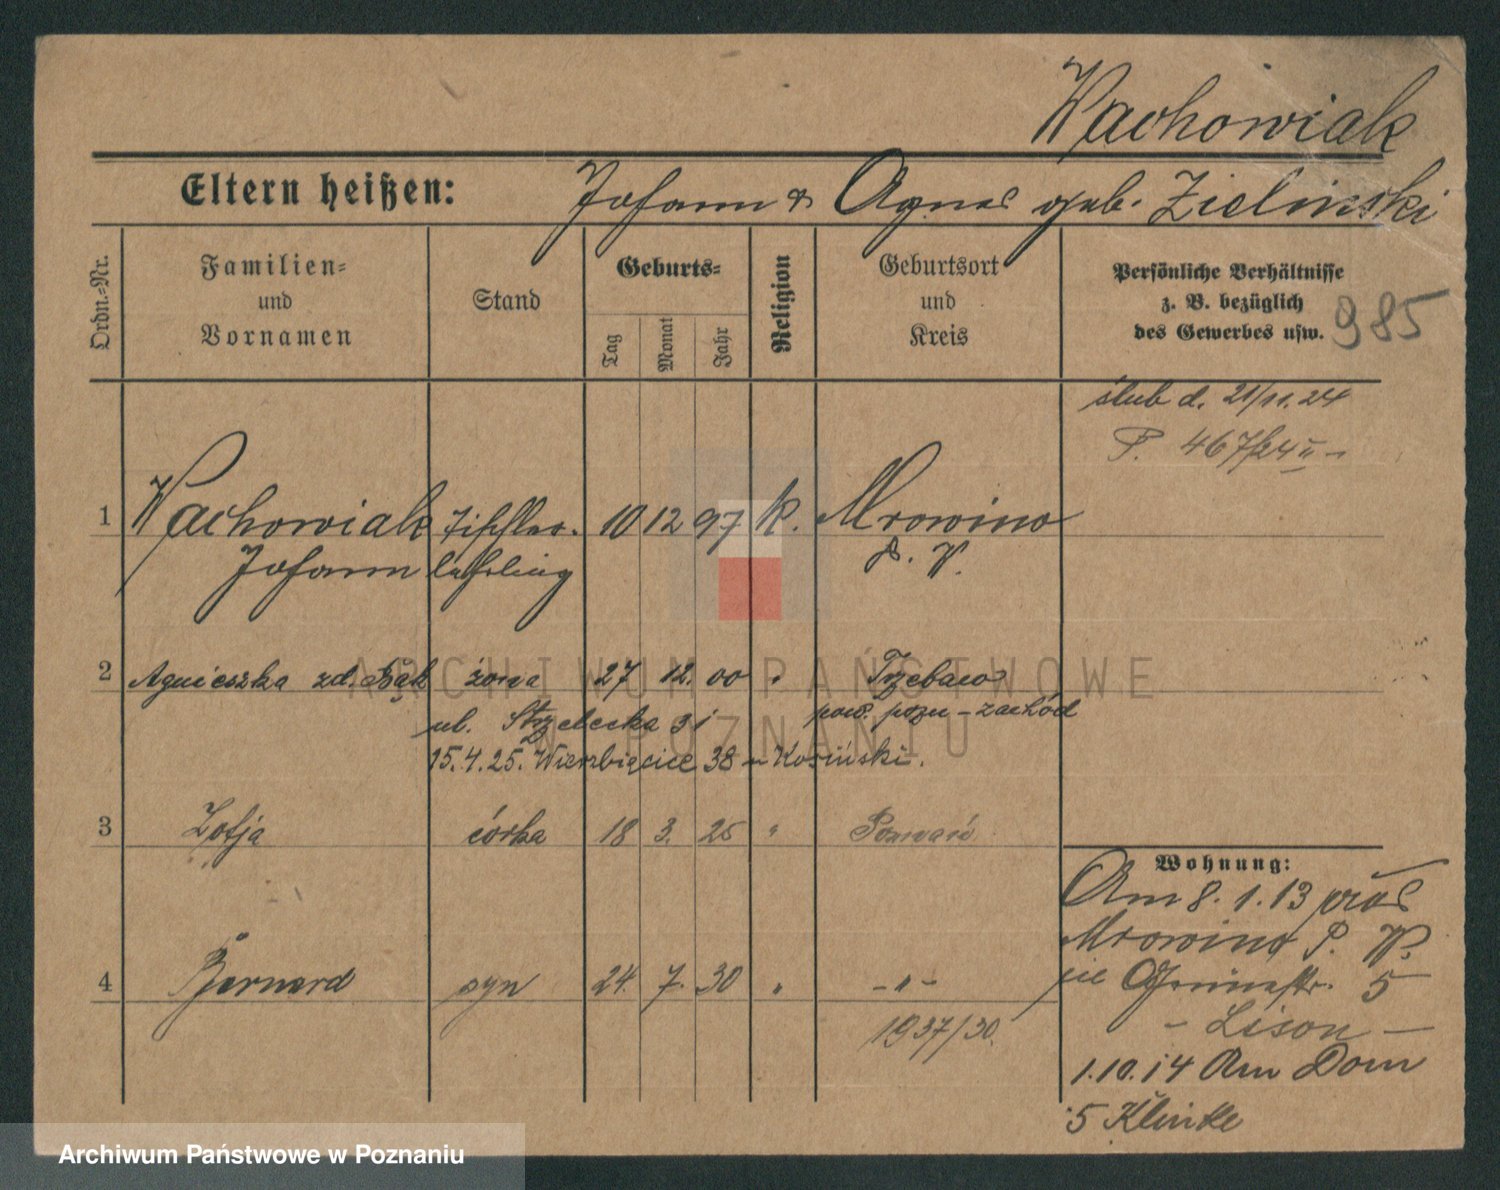 Wachowiak
Eltern heißen: Johann & Agnes geb. Zielinski
Ordn.-Nr.
Familien-
und
Vornamen
Stand
Geburts-
Tag
Monat
Jahr
Religion
Geburtsort
und
Kreis
Persönliche Verhältnisse
z. B. bezüglich
des Gewerbes usw.
985
ślub d. 21/11.24
P. 467/24 II -
1 Wachowiak Tischler- 10 12 97 k. Mrowino
Johann lehrling P. W.
2 Agnieszka zd. Bąk żona 27 12. 00 " Trzebaw
pow. pozn - zachód
ul. Strzelecka 31
15.4.25. Wierzbięcice 38 u Kosiński.
3 Zofja córka 18 3. 25 " Poznań
4 Bernard syn 24. 7. 30 " - " -
1937/30.
Wohnung:
Am 8.1.13 von
Mrowino P. W.
5
- Lison -
1.10.14 Am Dom
5 Klinke
ARCHIWUM PAŃSTWOWE
W POZNANIU
Archiwum Państwowe w Poznaniu